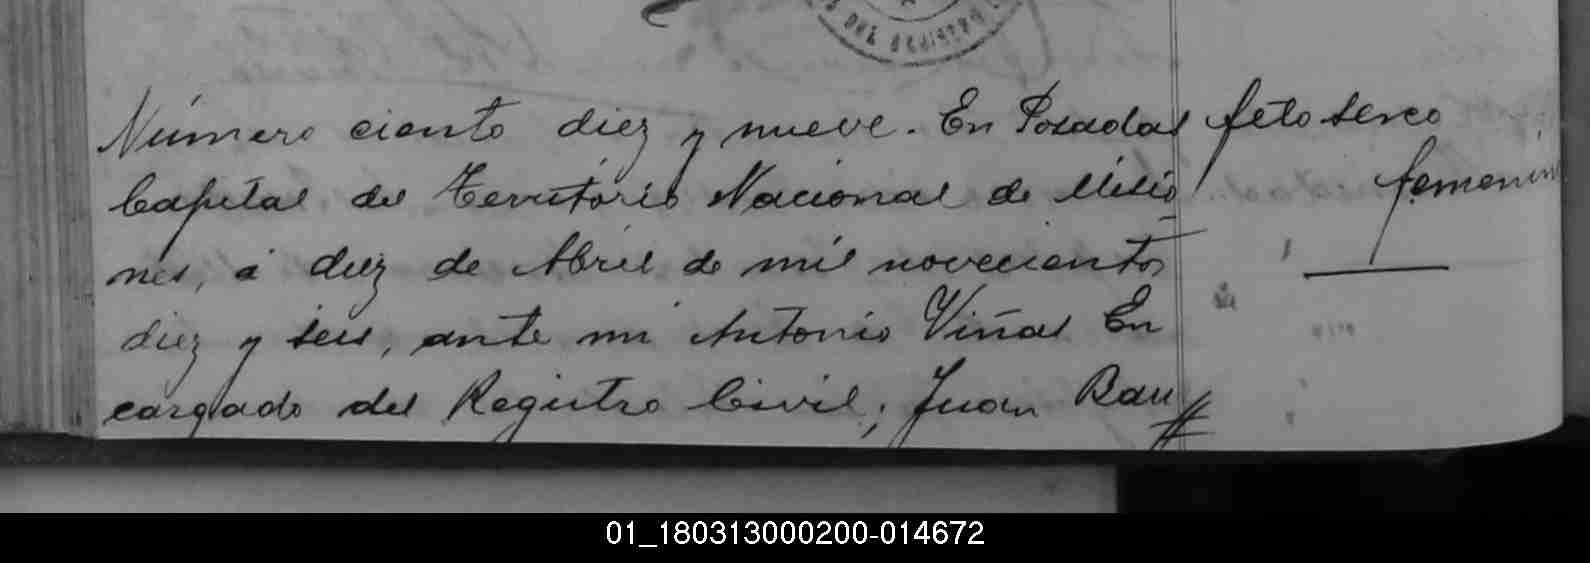 Número ciento diez y nueve. En Posadas
Capital del Territorio Nacional de Misio
nes, á diez de Abril de mil novecientos
diez y seis, ante mi Antonio Viñas En
cargado del Registro Civil, Juan Bau
feto sexco
femenin
01_180313000200-014672